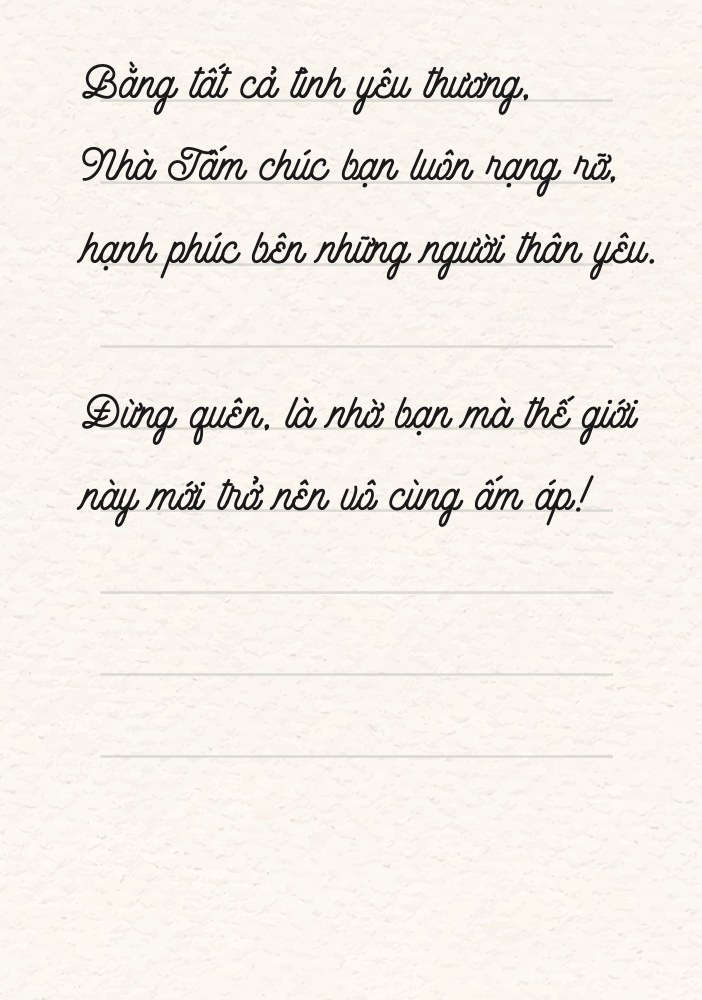 Bằng tất cả tình yêu thương,
Nhà Tấm chúc bạn luôn rạng rỡ,
hạnh phúc bên những người thân yêu.
Đừng quên, là nhờ bạn mà thế giới
này mới trở nên vô cùng ấm áp!